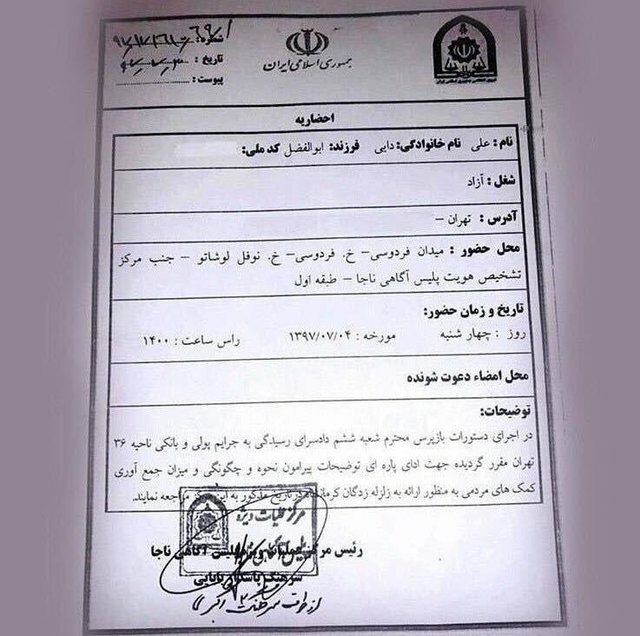 جمهوری اسلامی ایران
شماره :
تاریخ :
پیوست :
احضاریه
نام : علی نام خانوادگی: دایی فرزند: ابوالفضل کد ملی:
شغل : آزاد
آدرس : تهران –
محل حضور : میدان فردوسی– خ. فردوسی– خ. نوفل لوشاتو – جنب مرکز
تشخیص هویت پلیس آگاهی ناجا – طبقه اول
تاریخ و زمان حضور:
روز : چهار شنبه مورخه : ۱۳۹۷/۰۷/۰۴ راس ساعت : ۱۴۰۰
محل امضاء دعوت شونده
توضیحات:
در اجرای دستورات بازپرس محترم شعبه ششم دادسرای رسیدگی به جرایم پولی و بانکی ناحیه ۳۶
تهران مقرر گردیده جهت ادای پاره ای توضیحات پیرامون نحوه و چگونگی و میزان جمع آوری
کمک های مردمی به منظور ارائه به زلزله زدگان کرمانشاه در تاریخ مذکور به این مرکز مراجعه نمایند.
مرکز عملیات ویژه
رئیس مرکز عملیات ویژه پلیس آگاهی ناجا
سرهنگ پاسدار